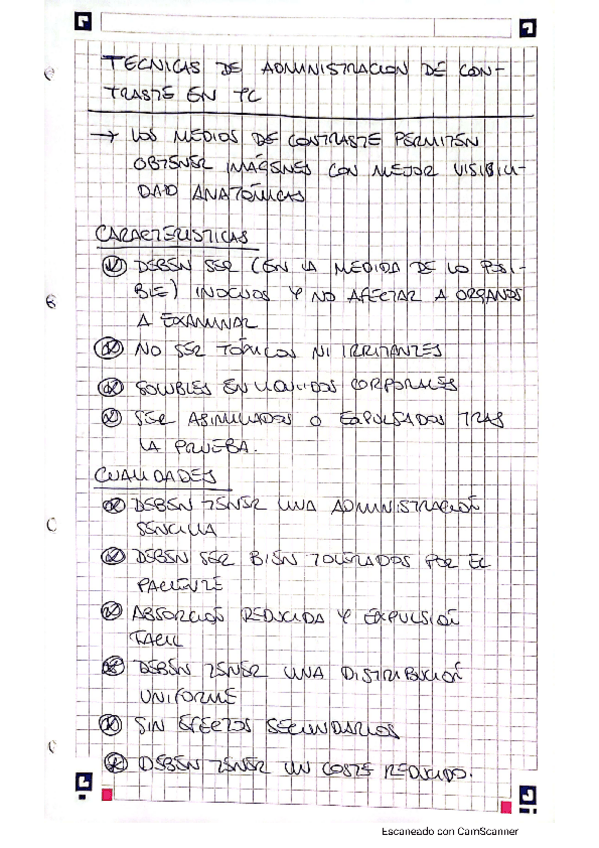 TECNICAS DE ADMINISTRACION DE CON-
TRASTE EN TC
→ LOS MEDIOS DE CONTRASTE PERMITEN
OBTENER IMÁGENES CON MEJOR VISIBILI-
DAD ANATÓMICAS
CARACTERISTICAS
DEBEN SER (EN LA MEDIDA DE LO POSI-
BLE) INOCUOS Y NO AFECTAR A ORGANOS
A EXAMINAR
NO SER TÓXICOS NI IRRITANTES
SOLUBLES EN LIQUIDOS CORPORALES
SER ASIMILADOS O EXPULSADOS TRAS
LA PRUEBA.
CUALIDADES
DEBEN TENER UNA ADMINISTRACIÓN
SENCILLA
DEBEN SER BIEN TOLERADOS POR EL
PACIENTE
ABSORCIÓN REDUCIDA Y EXPULSIÓN
FACIL
DEBEN TENER UNA DISTRIBUCIÓN
UNIFORME
SIN EFECTOS SECUNDARIOS
DEBEN TENER UN COSTE REDUCIDO.
Escaneado con CamScanner